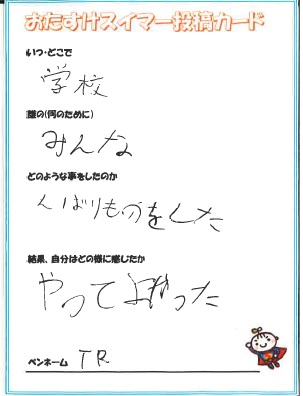 おたすけスイマー投稿カード
いつ・どこで
学校
誰の(何のために)
みんな
どのような事をしたのか
くばりものをした
結果、自分はどの様に感じたか
やってよかった
ペンネーム TR